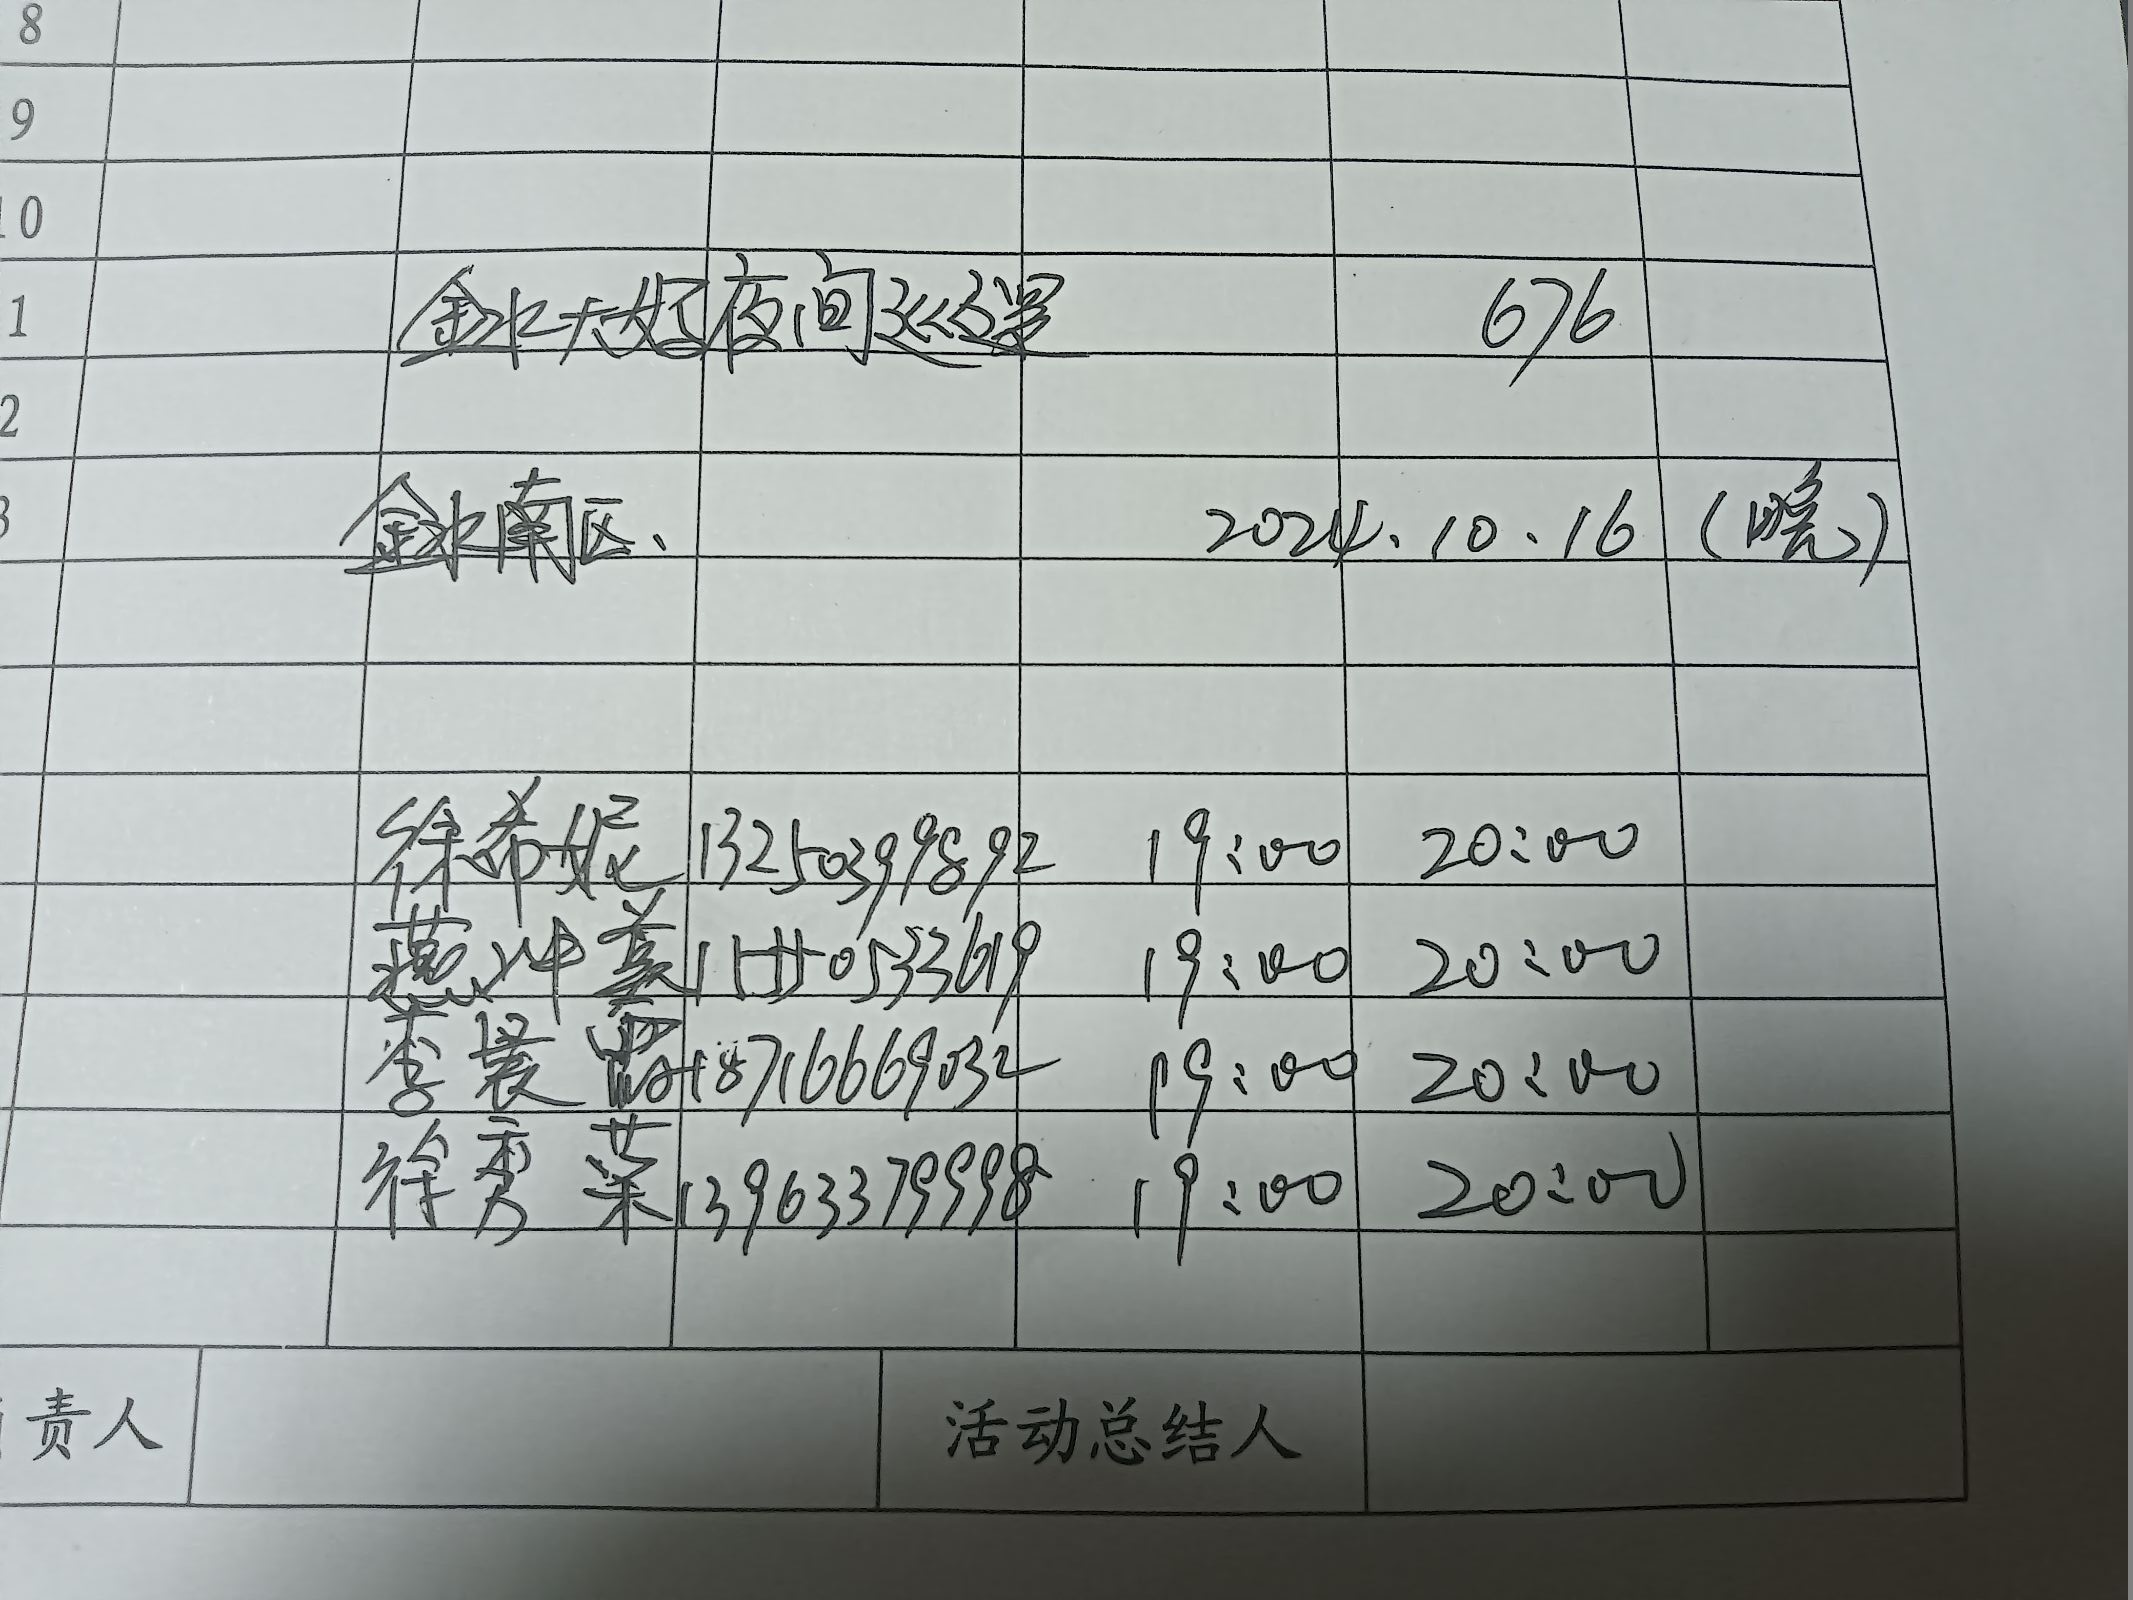 8
9
10
1
金水大好夜间巡逻 676
2
3 金水南区、 2024.10.16 (晚)
徐希妮 13250399892 19:00 20:00
燕冲 0533619 19:00 20:00
李晨 18716669032 19:00 20:00
徐秀荣 13963379998 19:00 20:00
责人 活动总结人